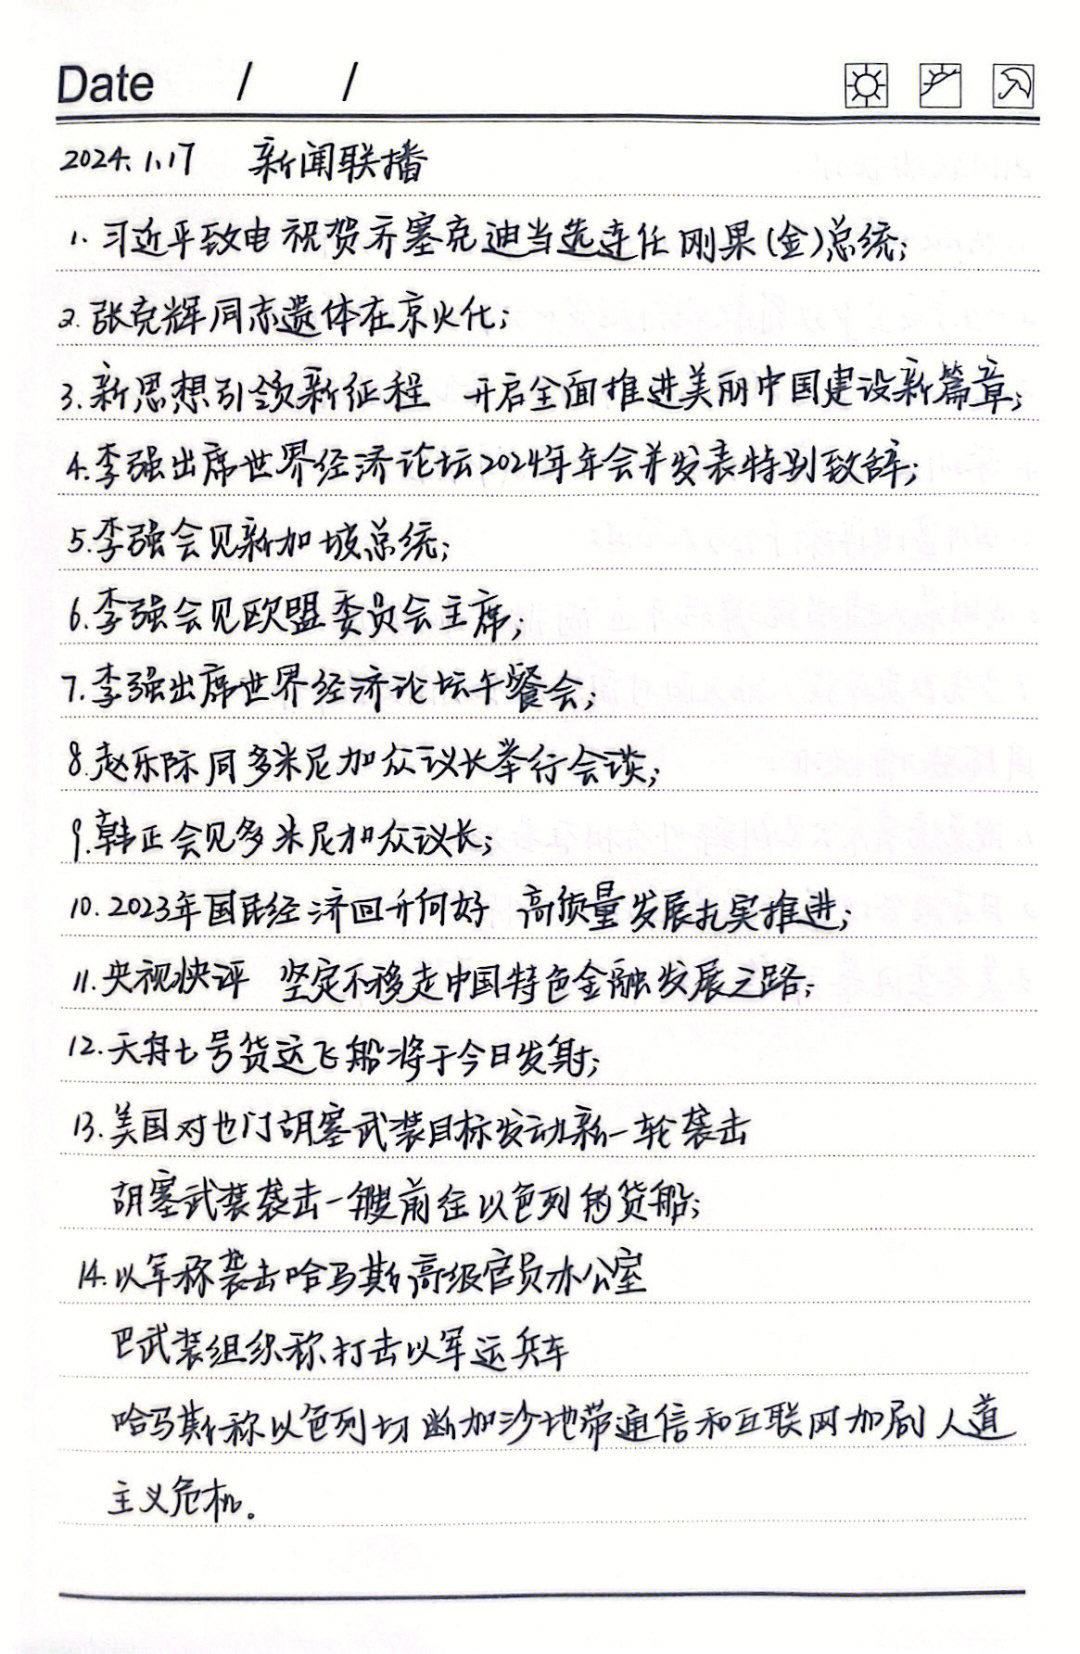 Date / /
2024.1.17 新闻联播
1.习近平致电祝贺齐塞克迪当选连任刚果(金)总统;
2.张克辉同志遗体在京火化;
3.新思想引领新征程 开启全面推进美丽中国建设新篇章;
4.李强出席世界经济论坛2024年年会并发表特别致辞;
5.李强会见新加坡总统;
6.李强会见欧盟委员会主席;
7.李强出席世界经济论坛午餐会;
8.赵乐际同多米尼加众议长举行会谈;
9.韩正会见多米尼加众议长;
10.2023年国民经济回升向好 高质量发展扎实推进;
11.央视快评 坚定不移走中国特色金融发展之路;
12.天舟七号货运飞船将于今日发射;
13.美国对也门胡塞武装目标发动新一轮袭击
胡塞武装袭击一艘前往以色列的货船;
14.以军称袭击哈马斯高级官员办公室
巴武装组织称打击以军运兵车
哈马斯称以色列切断加沙地带通信和互联网加剧人道
主义危机。